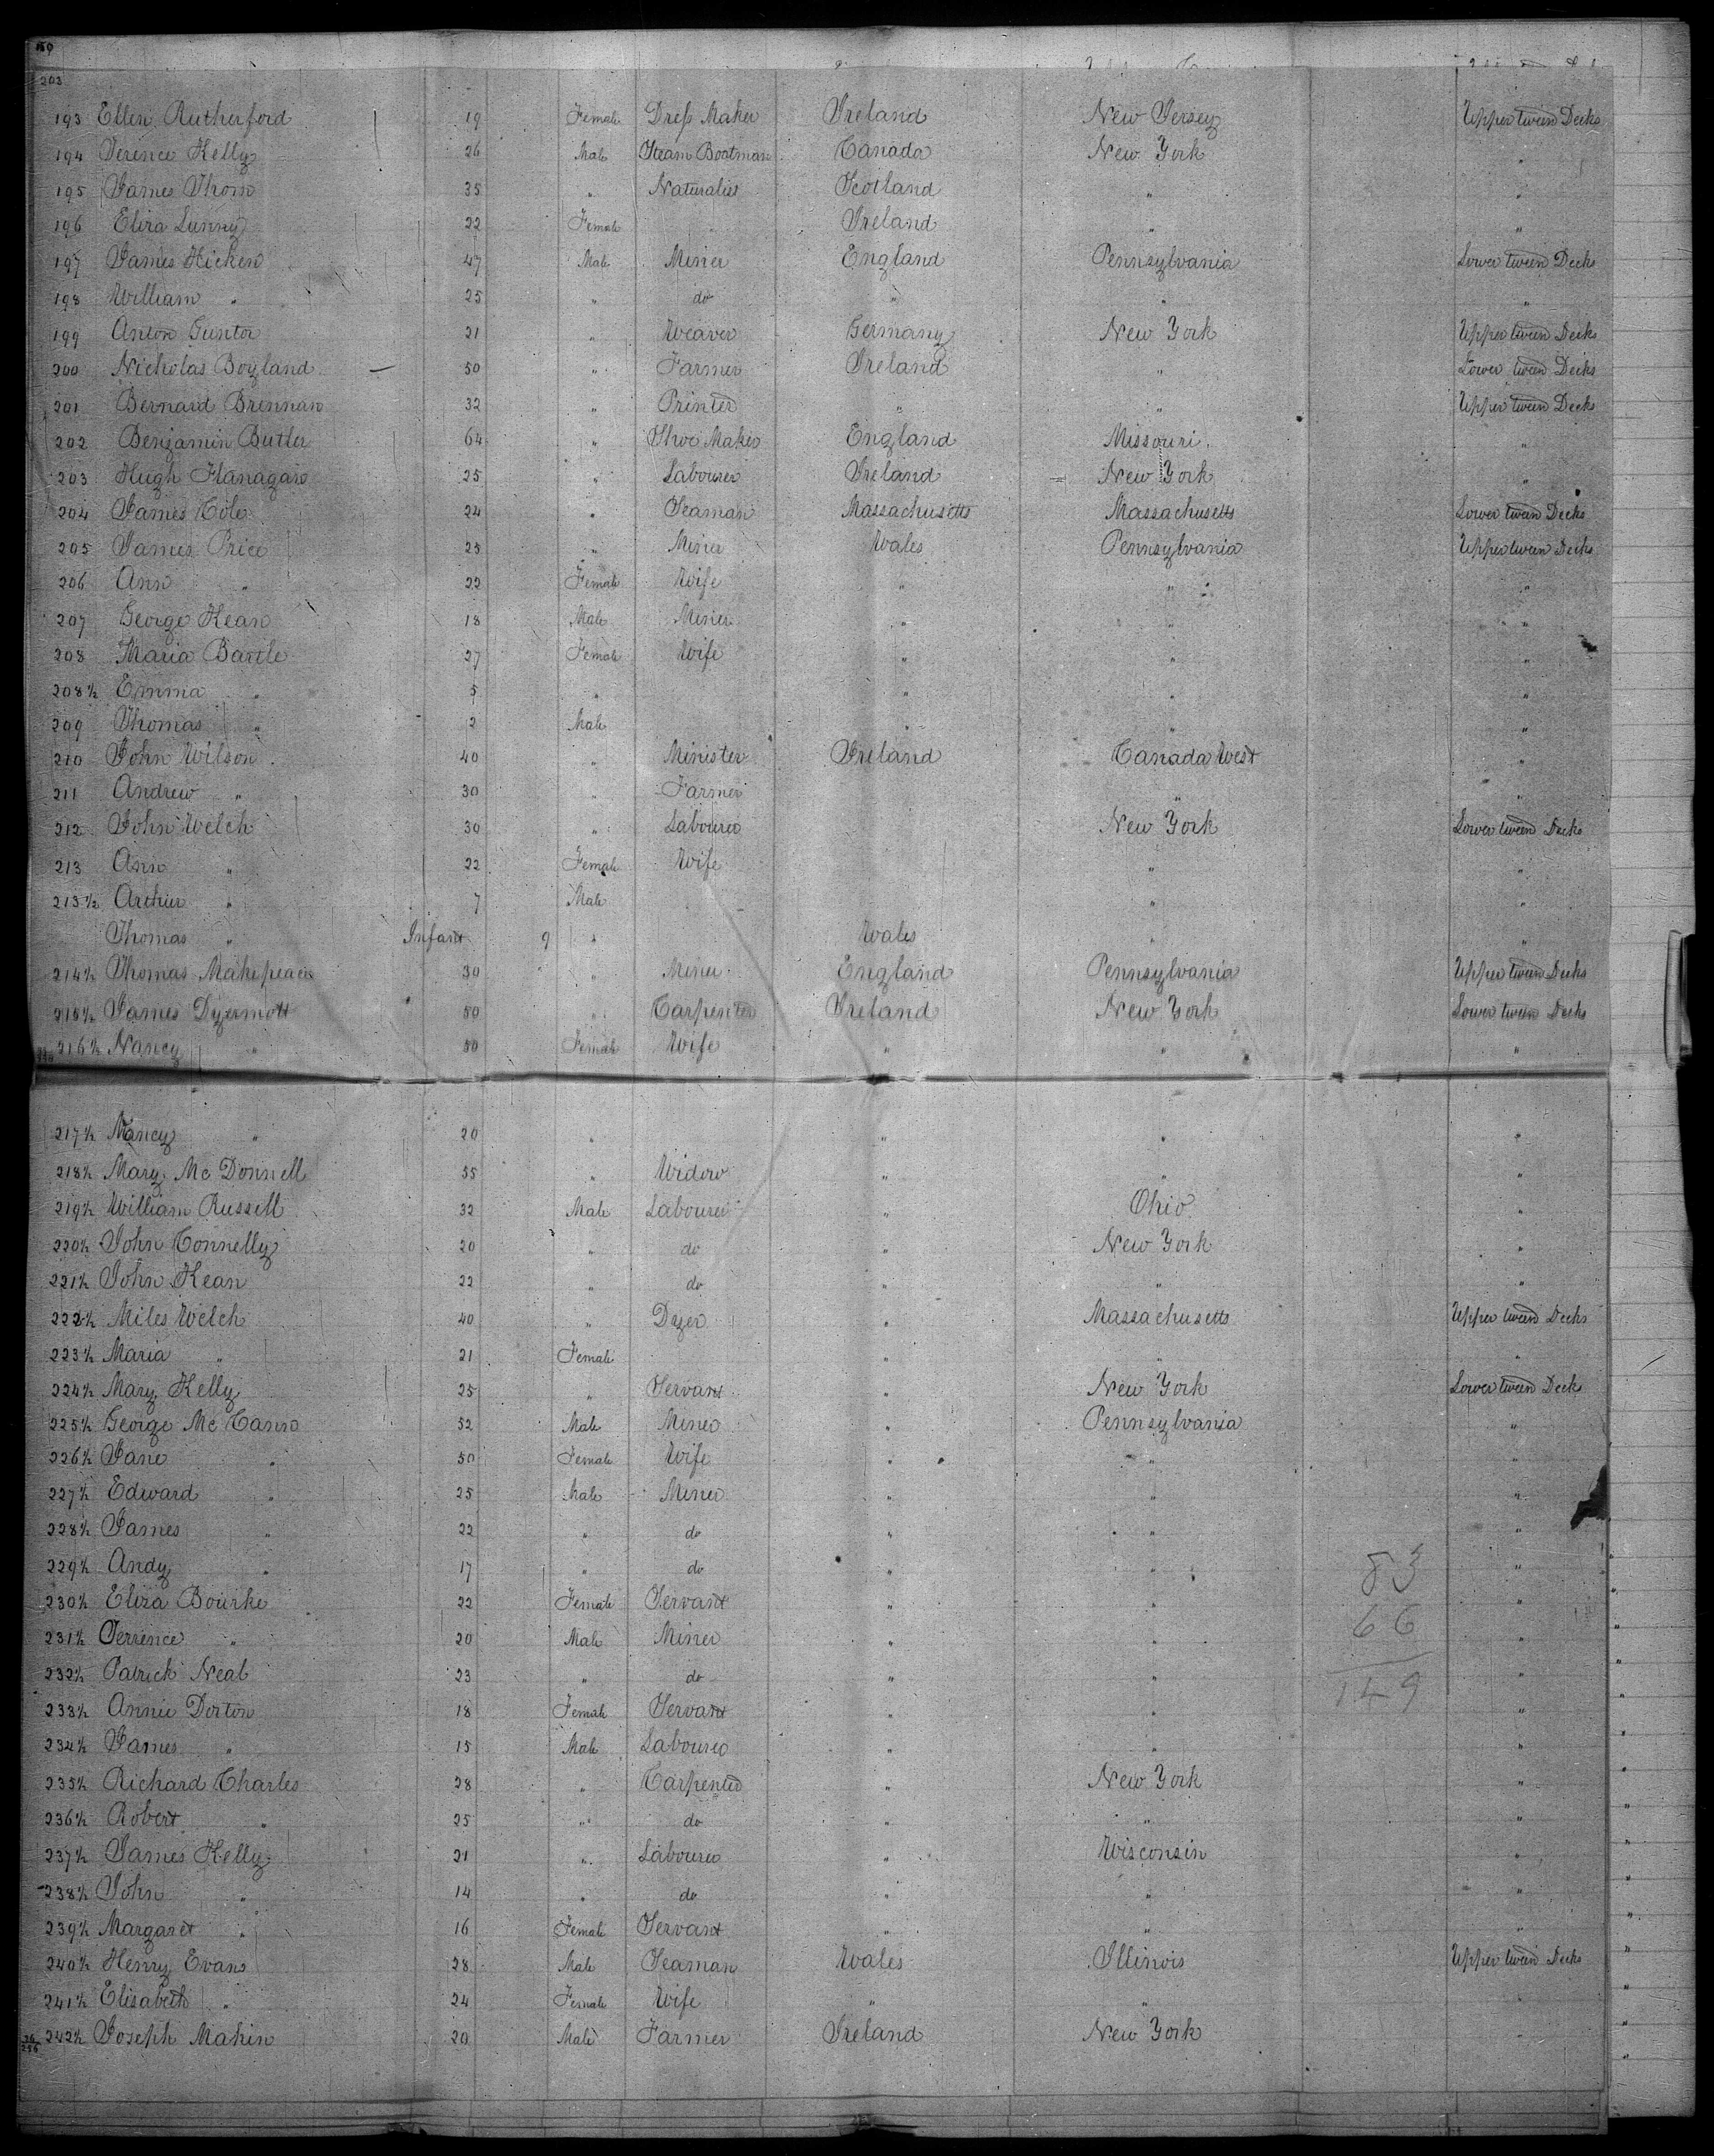 203
193 Ellen Rutherford 19 Female Dress Maker Ireland New Jersey Upper tween Decks
194 Terence Kelly 26 Male Steam Boatman Canada New York "
195 James Thom 35 " Naturalist Scotland " "
196 Eliza Lunny 22 Female Ireland " "
197 James Hicken 47 Male Miner England Pennsylvania Lower tween Decks
198 William " 25 " do " " "
199 Anton Guntor 21 " Weaver Germany New York Upper tween Decks
200 Nicholas Boyland 50 " Farmer Ireland " Lower tween Decks
201 Bernard Brennan 32 " Printer " " Upper tween Decks
202 Benjamin Butler 64 " Shoe Maker England Missouri "
203 Hugh Flanagan 25 " Labourer Ireland New York "
204 James Cole 24 " Seaman Massachusetts Massachusetts Lower tween Decks
205 James Price 25 " Miner Wales Pennsylvania Upper tween Decks
206 Ann " 22 Female Wife " " "
207 George Kean 18 Male Miner " " "
208 Maria Bartle 27 Female Wife " " "
208½ Emma " 5 " " " "
209 Thomas " 2 Male " " "
210 John Wilson 40 " Minister Ireland Canada West "
211 Andrew " 30 " Farmer " "
212 John Welch 30 " Labourer New York Lower tween Decks
213 Ann " 22 Female Wife " "
213½ Arthur " 7 Male " "
Thomas " Infant 9 " Wales " "
214½ Thomas Makepeace 30 " Miner England Pennsylvania Upper tween Decks
215½ James Dyermott 50 " Carpenter Ireland New York Lower tween Decks
216½ Nancy " 50 Female Wife " " "
217½ Nancy " 20 " " " "
218½ Mary Mc Donnell 55 " Widow " " "
219½ William Russell 32 Male Labourer " Ohio "
220½ John Connelly 20 " do " New York "
221½ John Kean 22 " do " " "
222½ Miles Welch 40 " Dyer " Massachusetts Upper tween Decks
223½ Maria " 21 Female " " "
224½ Mary Kelly 25 " Servant " New York Lower tween Decks
225½ George Mc Cann 52 Male Miner " Pennsylvania "
226½ Jane " 50 Female Wife " " "
227½ Edward " 25 Male Miner " " "
228½ James " 22 " do " " "
229½ Andy " 17 " do " " 83 "
230½ Eliza Bourke 22 Female Servant " " "
231½ Terrence " 20 Male Miner " " 66 "
232½ Patrick Neal 23 " do " " "
233½ Annie Dorton 18 Female Servant " " 149 "
234½ James " 15 Male Labourer " " "
235½ Richard Charles 28 " Carpenter " New York "
236½ Robert " 25 " do " " "
237½ James Kelly 21 " Labourer " Wisconsin "
238½ John " 14 " do " " "
239½ Margaret " 16 Female Servant " " "
240½ Henry Evans 28 Male Seaman Wales Illinois Upper tween Decks
241½ Elisabeth " 24 Female Wife " " "
242½ Joseph Makin 20 Male Farmer Ireland New York "